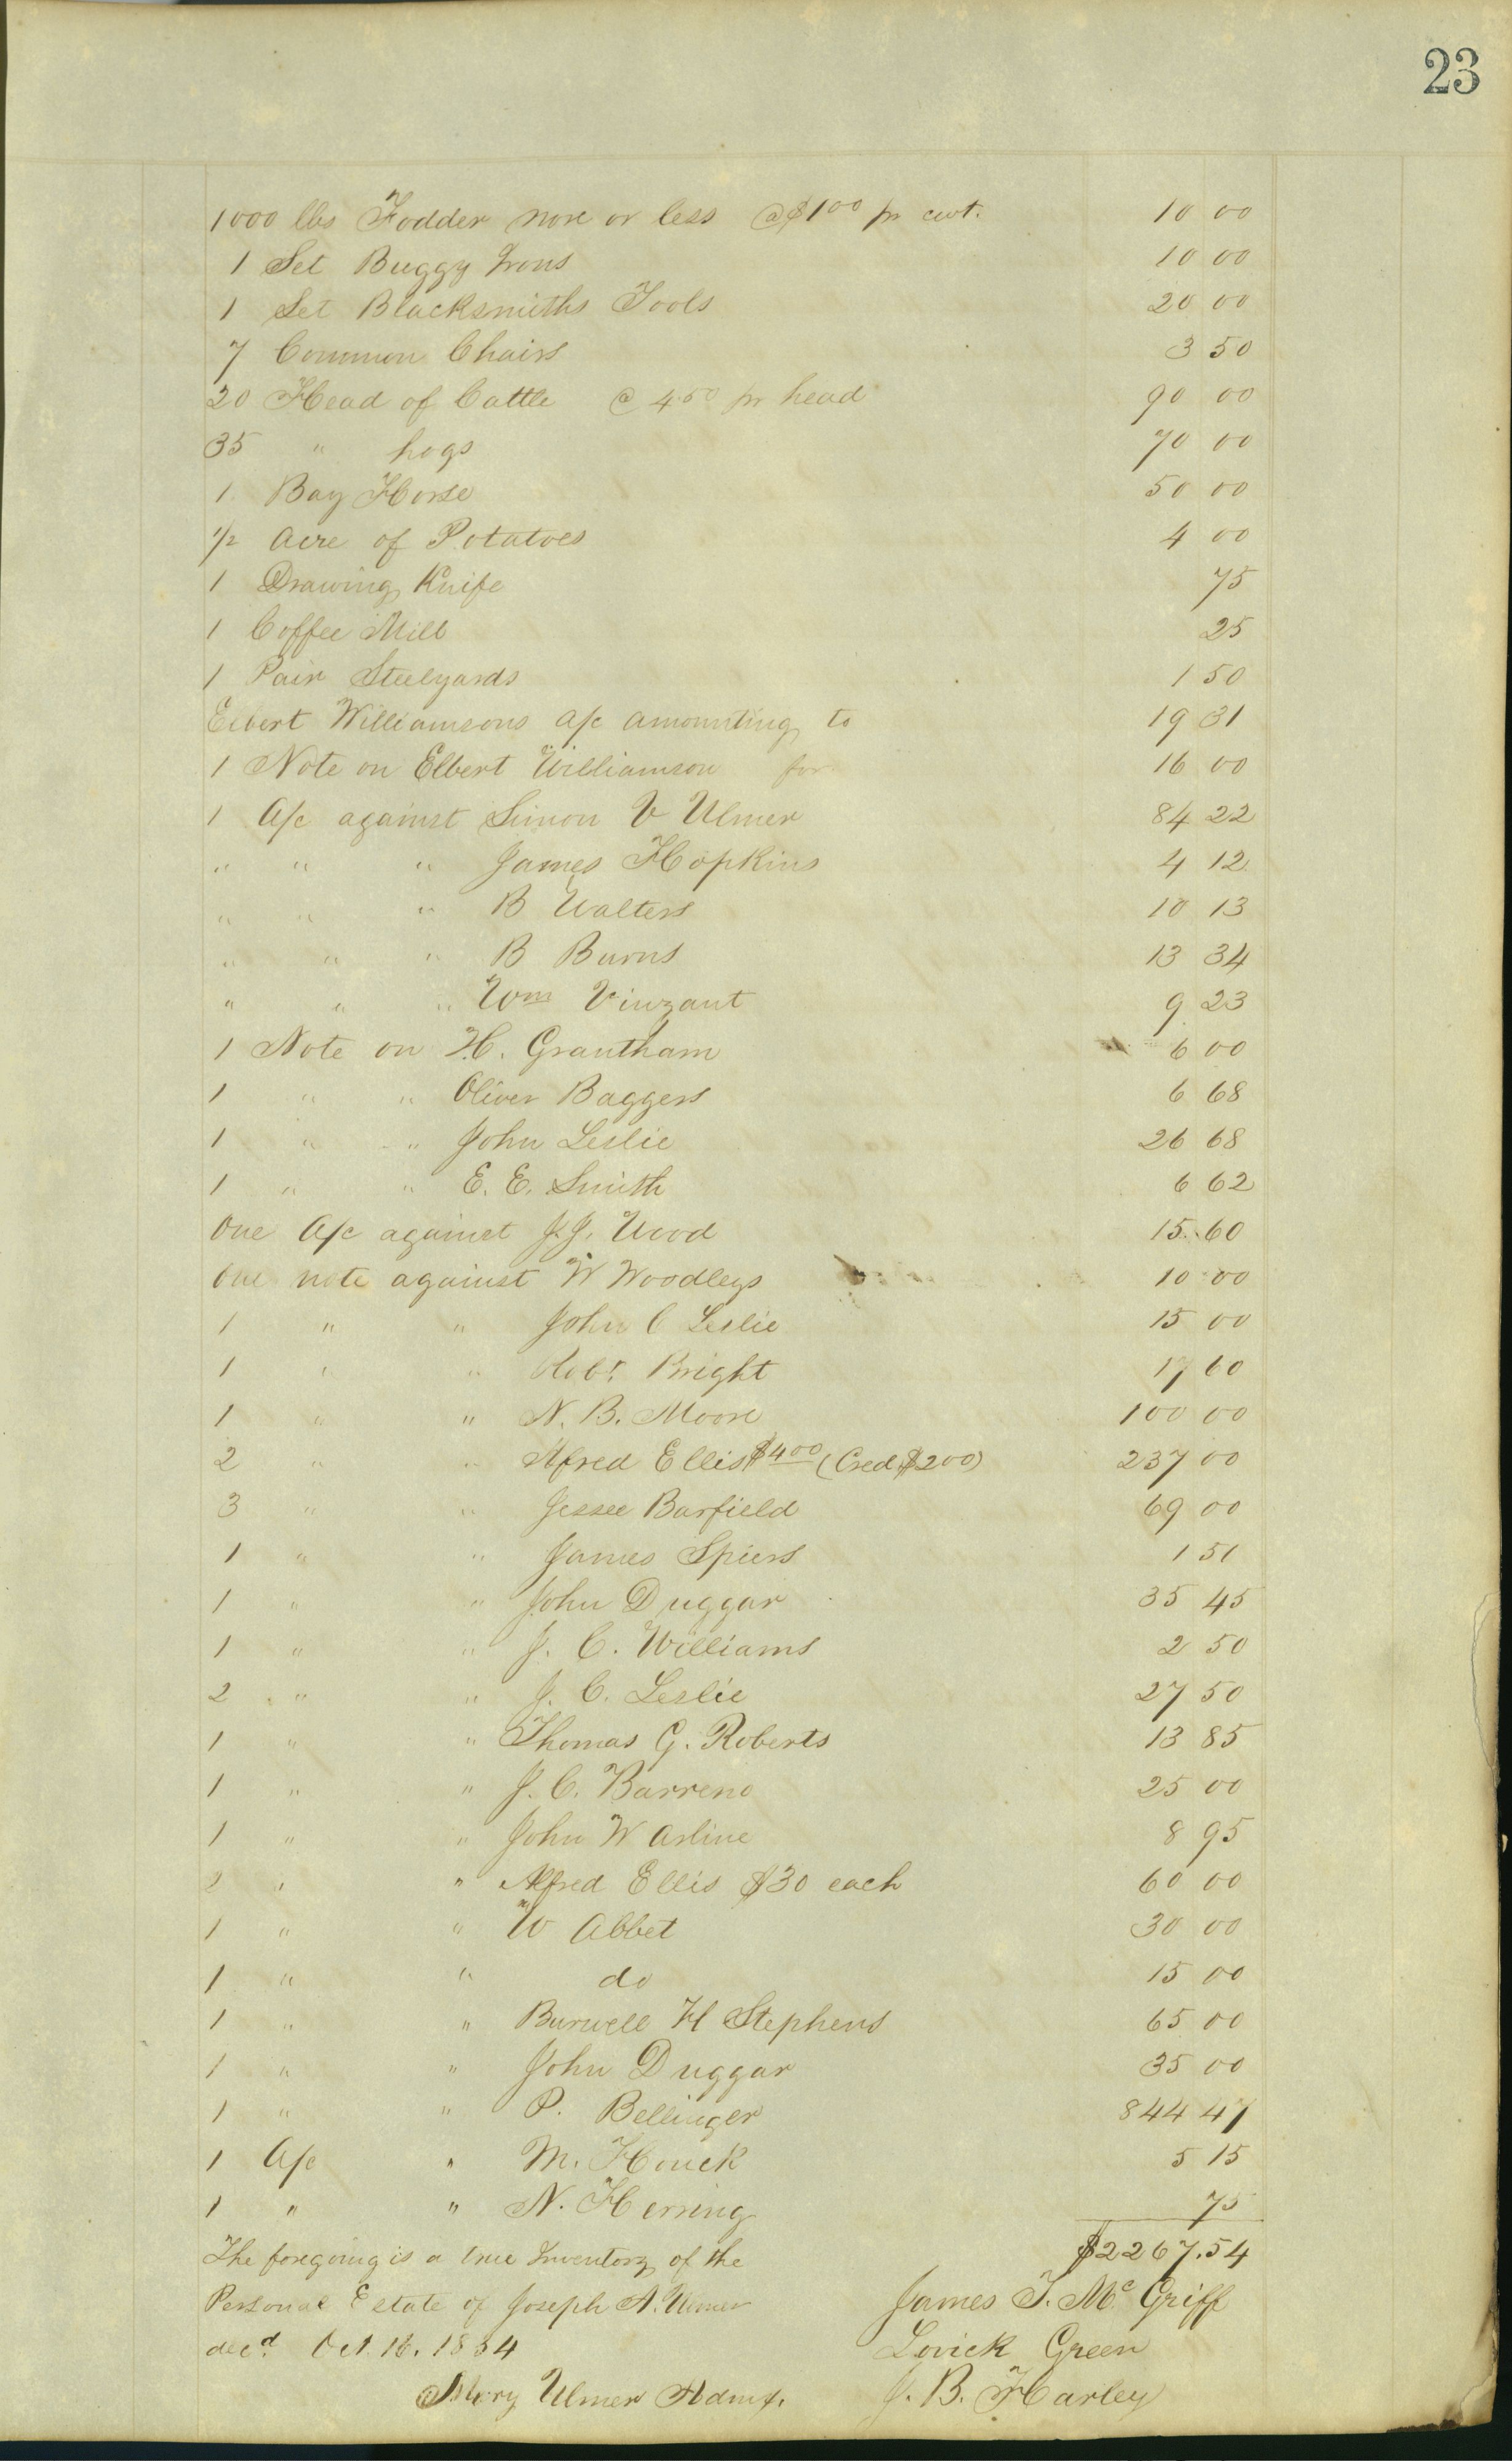 23
1000 lbs Fodder more or less @ $1 00 pr cwt. 10 00
1 Set Buggy Irons 10 00
1 Set Blacksmiths Tools 20 00
7 Common Chairs 3 50
20 Head of Cattle @ 4.50 pr head 90 00
35 " hogs 70 00
1 Bay Horse 50 00
1/2 Acre of Potatoes 4 00
1 Drawing Knife 75
1 Coffee Mill 25
1 Pair Steelyards 1 50
Elbert Williamsons a/c amounting to 19 31
1 Note on Elbert Williamson for 16 00
1 A/c against Simon V Ulmer 84 22
" " " James Hopkins 4 12
" " " B Walters 10 13
" " " B Burns 13 34
" " " Wm Vinzant 9 23
1 Note on H. Grantham 6 00
1 " " Oliver Baggers 6 68
1 " " John Leslie 26 68
1 " " E. E. Smith 6 62
One A/c against J.J. Wood 15.60
One note against W Woodleys 10 00
1 " " John C Leslie 15 00
1 " " Robt Bright 17 60
1 " " N. B. Moore 100 00
2 " " Alfred Ellis $4 00 (Cred. $200) 237 00
3 " " Jessee Barfield 69 00
1 " " James Spiers 1 51
1 " " John Duggar 35 45
1 " " J. C. Williams 2 50
2 " " J. C. Leslie 27 50
1 " " Thomas G. Roberts 13 85
1 " " J. C. Barreno 25 00
1 " " John W Arline 8 95
2 " " Alfred Ellis $30 each 60 00
1 " " W Abbet 30 00
1 " " do 15 00
1 " " Burwell H Stephens 65 00
1 " " John Duggar 35 00
1 " " P. Bellinger 844 47
1 A/c " M. Houck 5 15
1 " " N. Herring 75
$2267.54
The foregoing is a true Inventory of the
Personal Estate of Joseph A. Ulmer
decd. Oct 16. 1854
Mary Ulmer Admx.
James T. Mc Griff
Lovick Green
J. B. Harley